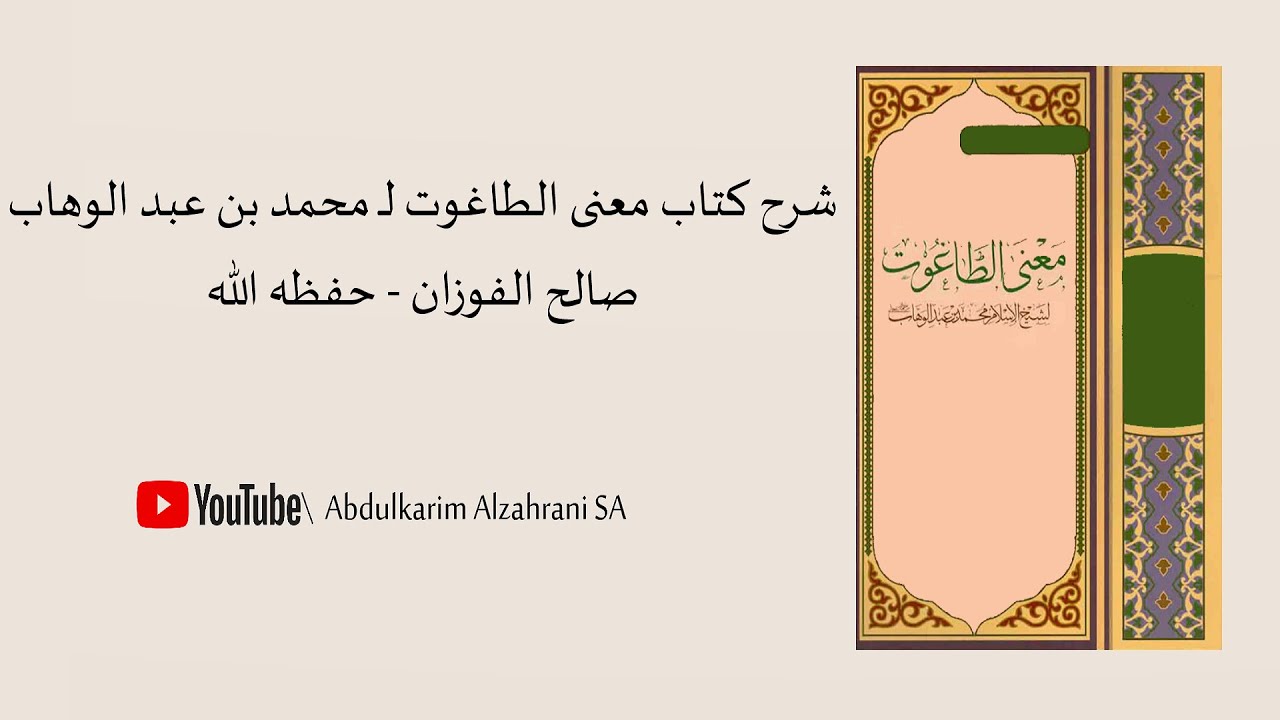 شرح كتاب معنى الطاغوت لـ محمد بن عبد الوهاب
صالح الفوزان - حفظه الله
YouTube\ Abdulkarim Alzahrani SA
مَعْنَى الطَّاغُوت
لشيخ الإسلام محمد بن عبد الوهاب